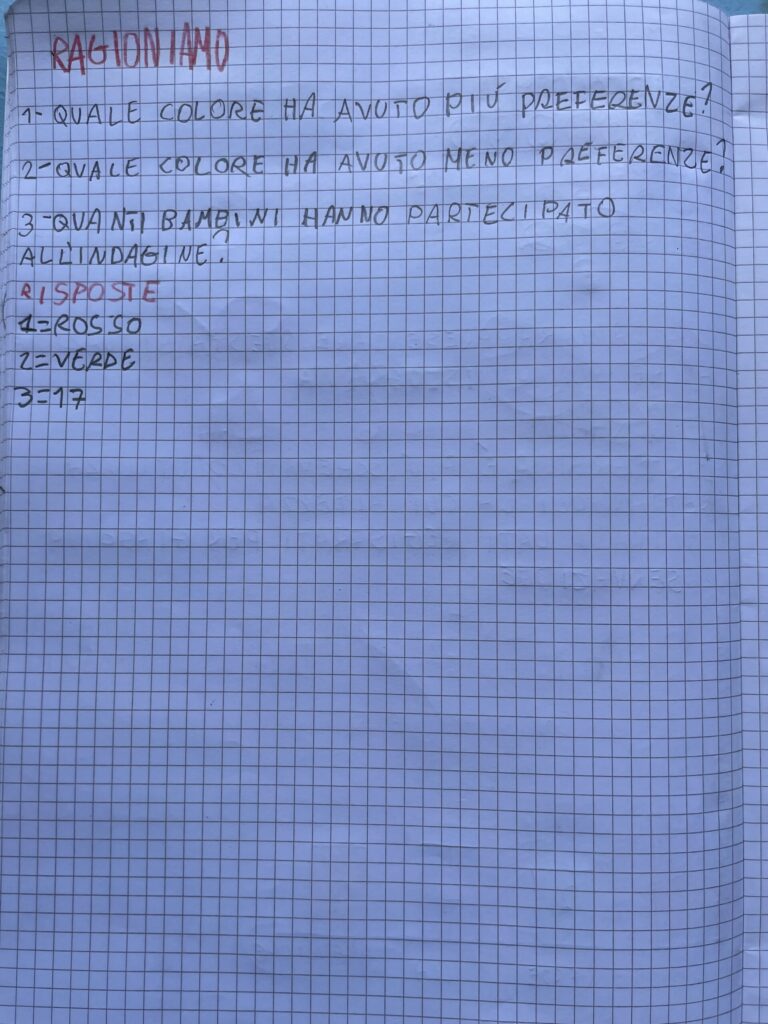 RAGIONIAMO
1- QUALE COLORE HA AVUTO PIÚ PREFERENZE?
2-QUALE COLORE HA AVUTO MENO PREFERENZE?
3-QUANTI BAMBINI HANNO PARTECIPATO
ALL'INDAGINE?
RISPOSTE
1=ROSSO
2=VERDE
3=17